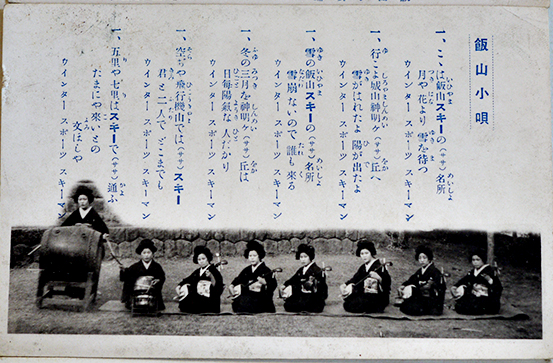 飯山小唄
一、こゝは飯山スキーの(ササ)名所
月や花より雪を待つ
ウインター スポーツ スキーマン
一、行こよ城山神明ヶ(ササ)丘へ
雪がはれたよ陽が出たよ
ウインター スポーツ スキーマン
一、雪の飯山スキーの(ササ)名所
雪崩ないので誰も來る
ウインター スポーツ スキーマン
一、冬の三月を神明ヶ(ササ)丘は
日毎陽氣な人だかり
ウインター スポーツ スキーマン
一、空ぢや飛行機山では(ササ)スキー
君と二人でどこまでも
ウインター スポーツ スキーマン
一、五里や七里はスキーで(ササ)通ふ
たまにや來いとの
文ほしや
ウインター スポーツ スキーマン